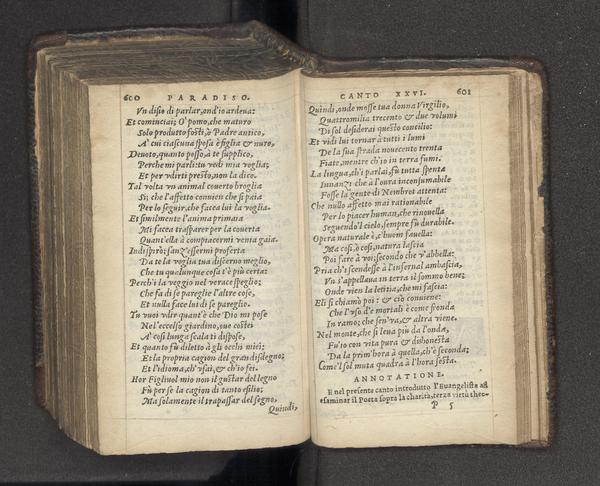 600 PARADISO.
Vn disio di parlar, ond'io ardeua:
Et cominciai; O' pomo, che maturo
Solo produtto fosti, ò Padre antico,
A' cui ciascuna sposa è figlia & nuro,
Deuoto, quanto posso, à te supplico,
Perche mi parli: tu vedi mia voglia;
Et per vdirti presto, non la dico.
Tal volta vn animal couerto broglia
Sì; che l'affetto conuien che si paia
Per lo seguir, che face a lui la voglia.
Et similmente l'anima primaia
Mi facea trasparer per la couerta
Quant'ella à compiacermi venia gaia.
Indi spirò: sanz'essermi proferta
Da te la voglia tua discerno meglio,
Che tu qualunque cosa t'è più certa:
Perch'i la veggio nel verace speglio;
Che fa di se pareglie l'altre cose,
Et nulla face lui di se pareglio.
Tu vuoi vdir quant'è che Dio mi pose
Nel'eccelso giardino, oue costei
A' così lunga scala ti dispose,
Et quanto fù diletto à gli occhi miei;
Et la propria cagion del gran disdegno;
Et l'idioma, ch'vsai, & ch'io fei.
Hor Figliuol mio non il gustar del legno
Fù per se la cagion di tanto essilio;
Ma solamente il trapassar del segno,
Quindi,
CANTO XXVI. 601
Quindi, onde mosse tua donna Virgilio,
Quattromilia trecento & due volumi
Di sol desiderai questo concilio:
Et vidi lui tornar à tutti i lumi
De la sua strada nouecento trenta
Fiate, mentre ch'io in terra fumi.
La lingua, ch'i parlai, fù tutta spenta
Innanzi che à l'oura inconsumabile
Fosse la gente di Nembrot attenta:
Che nullo affetto mai rationabile
Per lo piacer human, che rinouella
Seguendo'l cielo, sempre fù durabile.
Opera naturale è, c'huom fauella:
Ma così, ò così, natura lascia
Poi fare à voi; secondo che v'abbella:
Pria ch'i scendesse à l'infernal ambascia,
Vn s'appellaua in terra il sommo bene;
Onde vien la letitia, che mi fascia:
Eli si chiamò poi: & ciò conuiene:
Che l'vso d'e mortali è come fronda
In ramo; che sen'va, & altra viene.
Nel monte, che si leua più da l'onda,
Fu'io con vita pura & dishonesta
Da la prim'hora à quella, ch'è seconda;
Come'l sol muta quadra à l'hora sesta.
ANNOTATIONE.
E nel presente canto introdutto l'Euangelista ad
essaminar il Poeta sopra la charità, terza virtù theo-
P 5